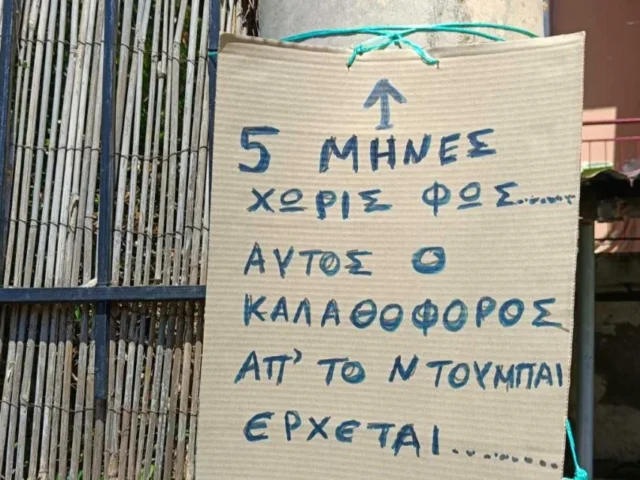 ↑
5 ΜΗΝΕΣ
ΧΩΡΙΣ ΦΩΣ.........
ΑΥΤΟΣ Ο
ΚΑΛΑΘΟΦΟΡΟΣ
ΑΠ' ΤΟ ΝΤΟΥΜΠΑΙ
ΕΡΧΕΤΑΙ..........